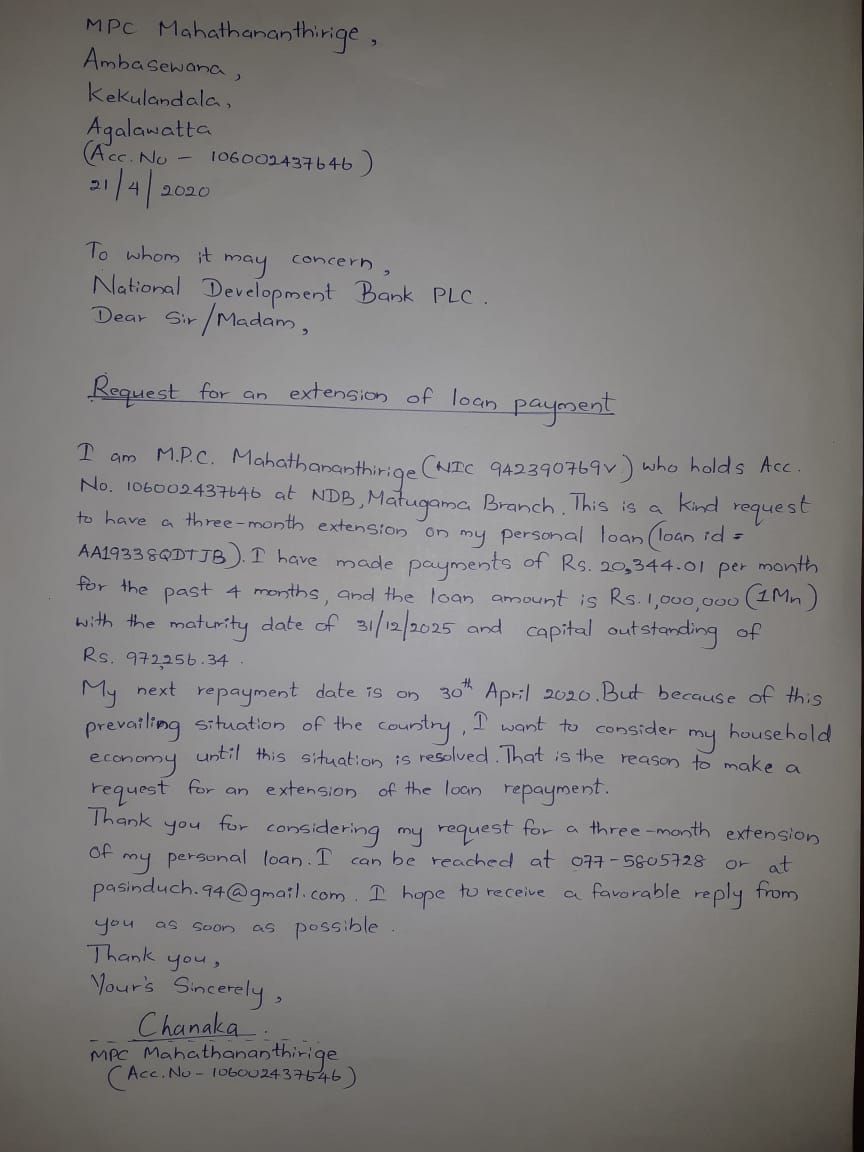 MPC Mahathananthirige,
Ambasewana,
Kekulandala,
Agalawatta
(Acc. No - 106002437646)
21/4/2020
To whom it may concern,
National Development Bank PLC.
Dear Sir/Madam,
Request for an extension of loan payment
I am M.P.C. Mahathananthirige (NIC 942390769V) who holds Acc.
No. 106002437646 at NDB, Matugama Branch. This is a kind request
to have a three-month extension on my personal loan (loan id =
AA19338QDTJB). I have made payments of Rs. 20,344.01 per month
for the past 4 months, and the loan amount is Rs. 1,000,000 (1Mn)
with the maturity date of 31/12/2025 and capital outstanding of
Rs. 972,256.34.
My next repayment date is on 30th April 2020. But because of this
prevailing situation of the country, I want to consider my household
economy until this situation is resolved. That is the reason to make a
request for an extension of the loan repayment.
Thank you for considering my request for a three-month extension
of my personal loan. I can be reached at 077-5805728 or at
pasinduch.94@gmail.com. I hope to receive a favorable reply from
you as soon as possible.
Thank you,
Your's Sincerely,
Chanaka.
MPC Mahathananthirige
(Acc. No - 106002437646)